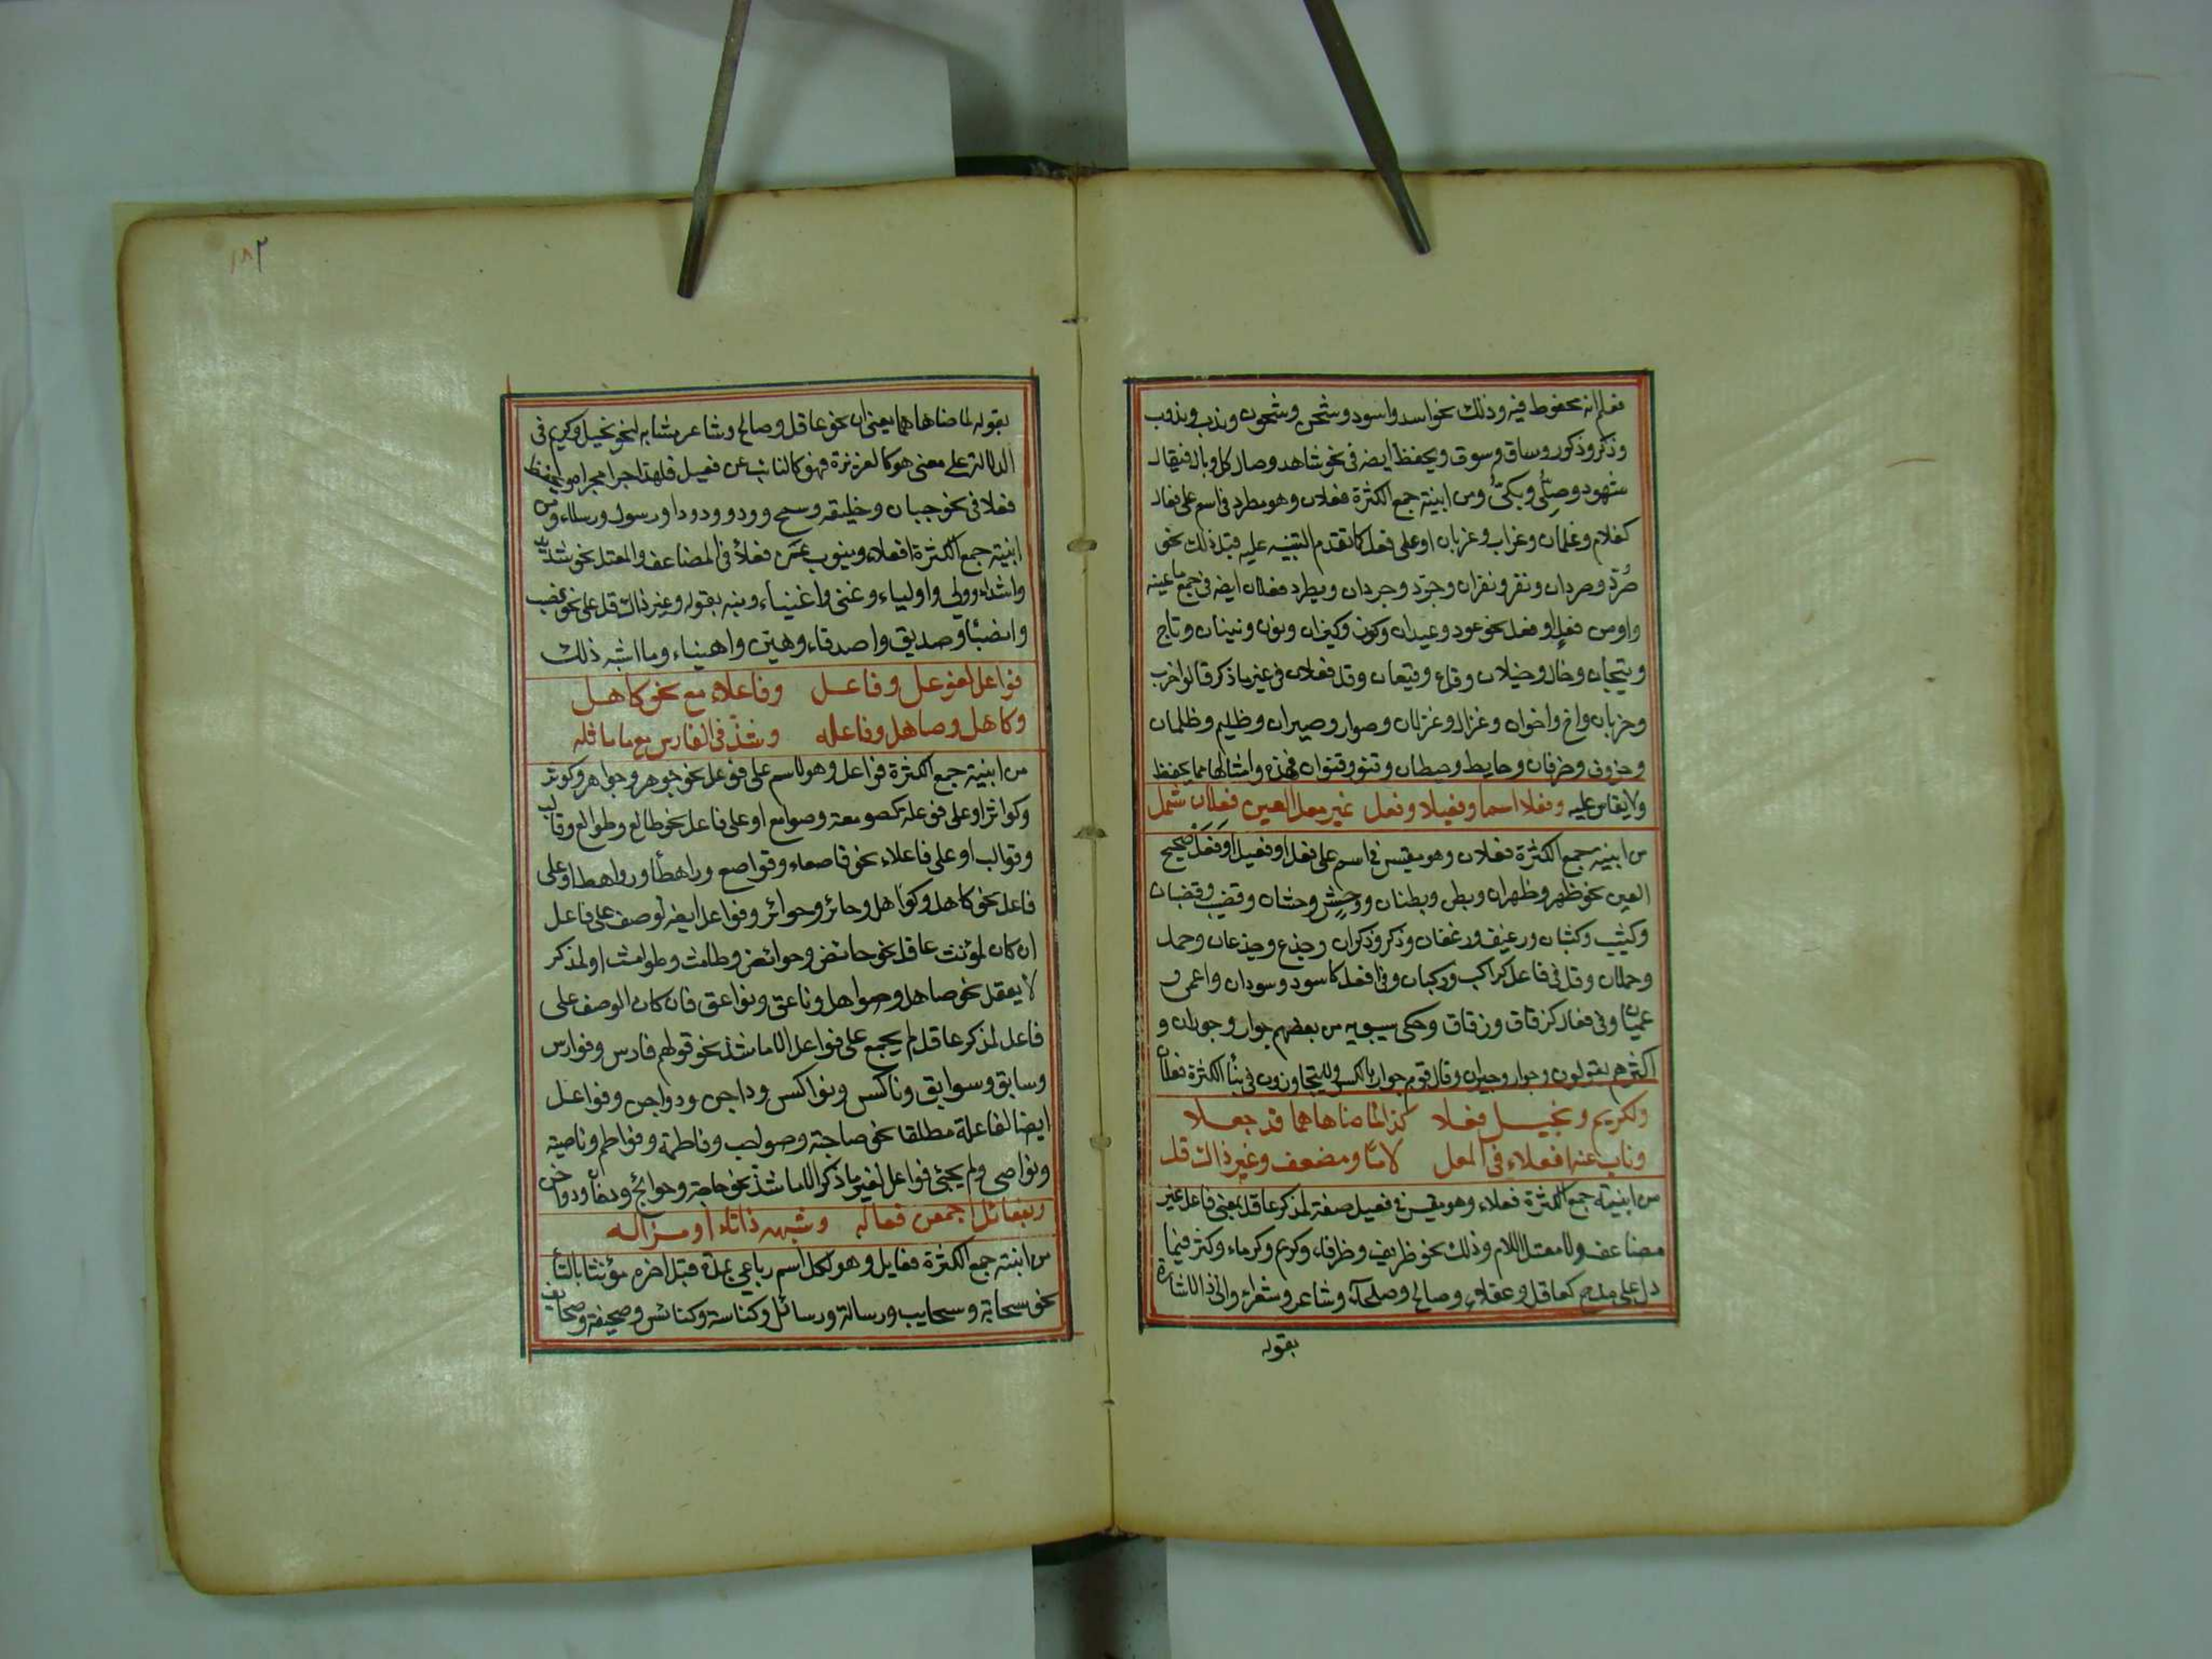 فعلم انه محفوظ فيه وذلك نحو اسد واسود وشجن وشجون وندب وندوب
وذكر وذكور وساق وسوق ويحفظ ايضه في نحو شاهد وصال كل وباك فيقال
شهود وصلّى وبكىّ ومن ابنية جمع الكثرة فعلان وهو مطرد في اسم على فعال
كغلام وغلمان وغراب وغربان او على فعل كما تقدم التنبيه عليه قبل ذلك نحو
صُرد وصردان ونغر ونغران وجرد وجردان ويطرد فعلان ايضه في جمع ما عينه
واو من فعل او فعل نحو عود وعيدان وكوز وكيزان ونون ونينان وتاج
وتيجان وخال وخيلان وقاع وقيعان وقل فعلان في غير ما ذكر قالوا خرب
وخربان واخ واخوان وغزال وغزلان وصوار وصيران وظليم وظلمان
وخروف وخرفان وحايط وحيطان وقنو وقنوان فهذه وامثالها مما يحفظ
ولا يقاس عليه وفعلا اسما وفعيلا وفعل غير معل العين فعلان شمل
من ابنيه جمع الكثرة فعلان وهو مقيس في اسم على فعل او فعيل او فَعَل صحيح
العين نحو ظهر وظهران وبطن وبطنان وحش وحشان وقضيب وقضبان
وكثيب وكثبان ورغيف ورغفان وذكر وذكران وجذع وجذعان وحمل
وحملان وقل في فاعل كراكب وركبان وفي افعل كاسود وسودان واعمى و
عميان وفي فعال كزقاق وزقاق وحكى سيبويه من بعضهم جوار وجوران و
اكثرهم يقولون وجوار وجيران وقال قوم جوار بالكسر ولا يتجاوزون في بنأ الكثرة فعلان
ولكريم وبخيل فعلا كذا لما ضاهاهما قد جعلا
وناب عنه افعلاء في المعل لامًا ومضعف وغير ذاك قل
من ابنية جمع الكثرة فعلاء وهو مقيس في فعيل صفة لمذكر عاقل بمعنى فاعل غير
مضاعف ولا معتل اللام وذلك نحو ظريف وظرفاء وكريم وكرماء وكثر فيما
دل على مدح كعاقل وعقلاء وصالح وصلحآء وشاعر وشعراء والى ذا الاشارة
بقوله
١٨٢
بقوله لما ضاهاهما يعني ان نحو عاقل وصالح وشاعر مشابه لنحو بخيل وكريم في
الدلالة على معنى هو كالغريزة فهو كالنائب عن فعيل فلهذا اجرا مجراه ويحفظ
فعلا في نحو جبان وخليفه وسمح وودو وددودا ورسول ورسلاء ومن
ابنية جمع الكثرة افعلاء وينوب عن فعلأ في المضاعف والمعتل نحو شديد
واشداء وولي واولياء وغني واغنياء ونبه بقوله وغير ذاك قل على نحو نصيب
وانصبأ وصديق واصدقاء وهين واهيناء وما اشبه ذلك
فواعل لفوعل وفاعل وفاعلاء مع نحو كاهل
وكاهل وصاهل وفاعله وشذّ في الفارس مع ما ماثله
من ابنية جمع الكثرة فواعل وهو لاسم على فوعل نحو جوهر وجواهر وكوثر
وكواثر او على فوعلة كصومعة وصوامع او على فاعل نحو طالع وطوالع وقالب
وقوالب او على فاعلاء نحو قاصعاء وقواصع وراهطأ ورواهط او على
فاعل نحو كاهل وكواهل وحائر وحوائر وفواعل ايضه لوصف على فاعل
ان كان لمؤنث عاقل نحو حائض وحوائض وطامث وطوامث او لمذكر
لا يعقل نحو صاهل وصواهل وناعق ونواعق فان كان الوصف على
فاعل لمذكر عاقل لم يجمع على فواعل الا ما شذ نحو قولهم فارس وفوارس
وسابق وسوابق وناكس ونواكس وداجن ودواجن وفواعل
ايضا لفاعلة مطلقا نحو صاحبة وصواحب وفاطمة وفواطم وناصية
ونواصي ولم يجئ فواعل لغير ما ذكر الا ما شذ نحو حاجة وحوائج ودخان ودواخن
وبفعائل اجمعن فعاله وشبهه ذا تاء او مزاله
من ابنية جمع الكثرة فعايل وهو لكل اسم رباعي بمدة قبل اخره مؤنثا بالتأ
نحو سحابة وسحايب ورسالة ورسائل وكناسة وكنائس وصحيفة وصحايف